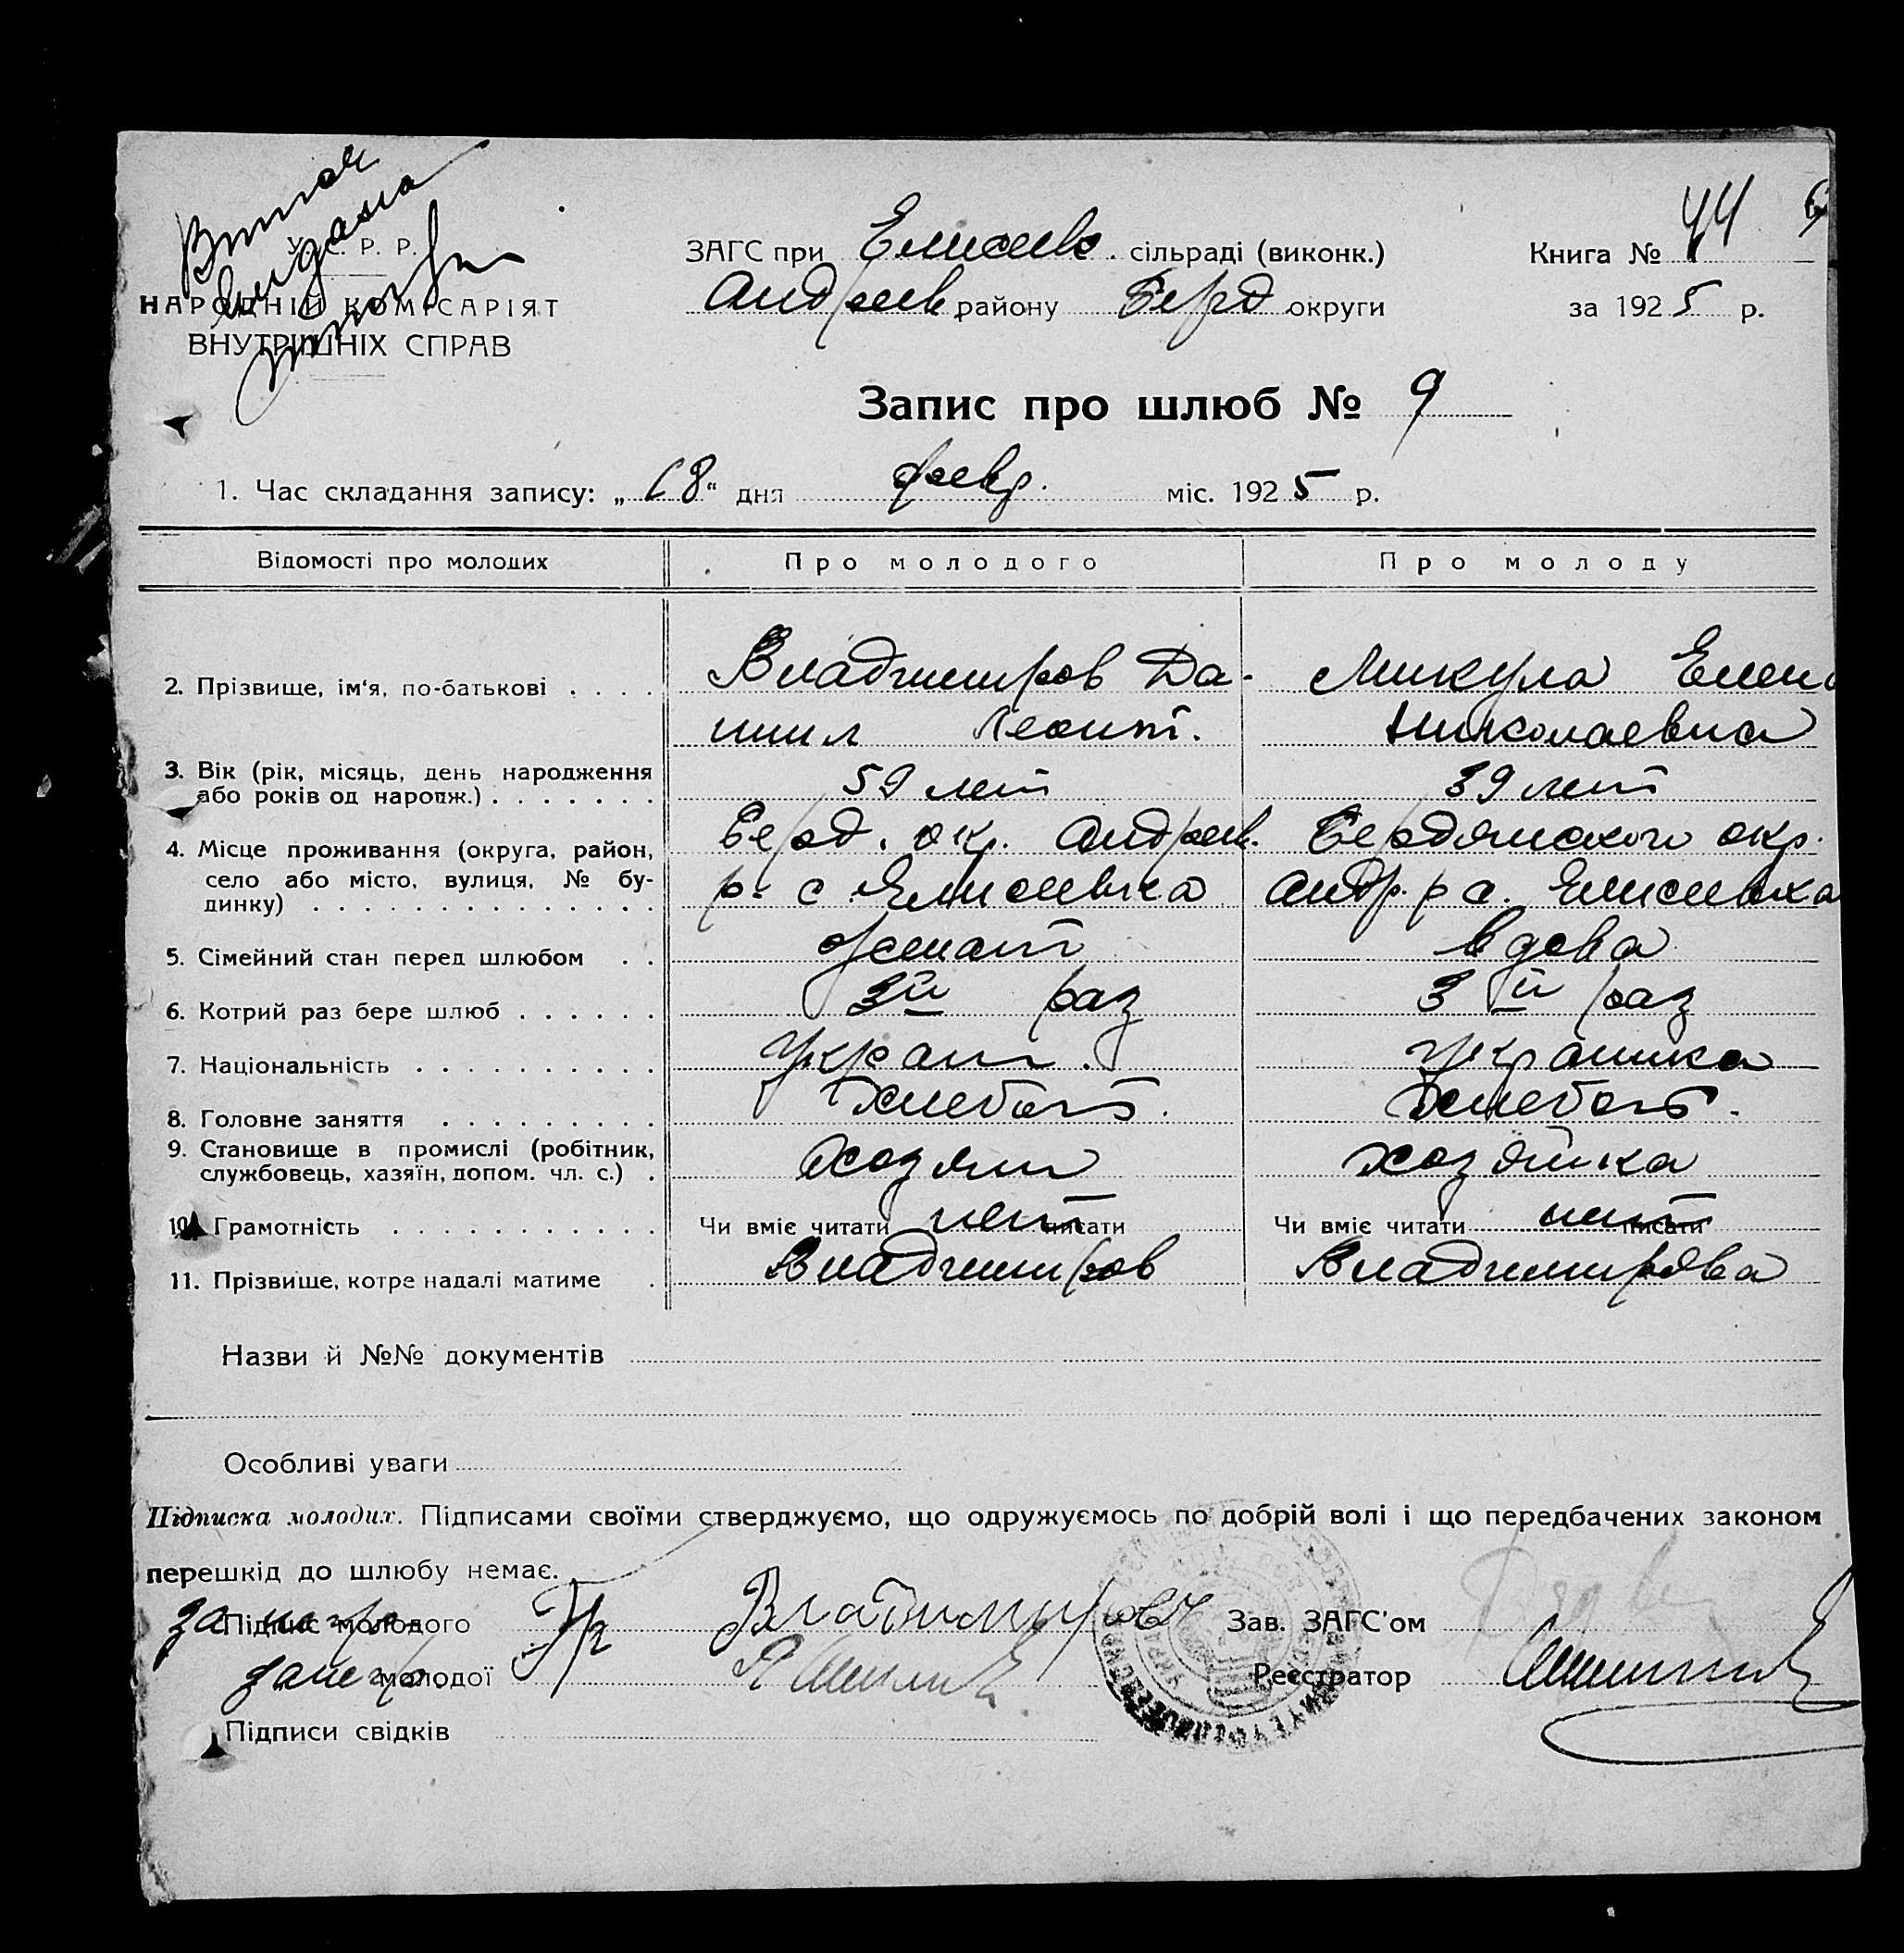 У. С. Р. Р.
НАРОДНІЙ КОМІСАРІЯТ
ВНУТРІШНІХ СПРАВ
ЗАГС при Елисеев. сільраді (виконк.)
Андреев району Берд округи
Книга № 44
за 1925 р.
Запис про шлюб № 9
1. Час складання запису: „ 8“ дня февр. міс. 1925 р.
Відомості про молодих Про молодого Про молоду
2. Прізвище, ім'я, по-батькові . . . . Владимиров Да- Микула Елена
ниил Леонт. Николаевна
3. Вік (рік, місяць, день народження
або років од народж.) . . . . . . . 59 лет 39 лет
4. Місце проживання (округа, район, Берд. окр. Андреев. Бердянского окр.
село або місто, вулиця, № бу- р. с Елисеевка Андр. р с. Елисеевка
динку) . . . . . . . . . . . . . .
5. Сімейний стан перед шлюбом . . женат вдова
6. Котрий раз бере шлюб . . . . . . 3й раз 3й раз
7. Національність . . . . . . . . . . Украин. Украинка
8. Головне заняття . . . . . . . . . Хлебоп. Хлебоп.
9. Становище в промислі (робітник,
службовець, хазяїн, допом. чл. с.) . Хозяин хозяйка
10. Грамотність . . . . . . . . . . . Чи вміє читати нет писати Чи вміє читати нет писати
11. Прізвище, котре надалі матиме . Владимиров Владимирова
Назви й №№ документів
Особливі уваги
Підписка молодих. Підписами своїми стверджуємо, що одружуємось по добрій волі і що передбачених законом
перешкід до шлюбу немає.
за негр. Підпис молодого Гр Владимиров Зав. ЗАГС'ом
за негр. молодої Реєстратор
Підписи свідків